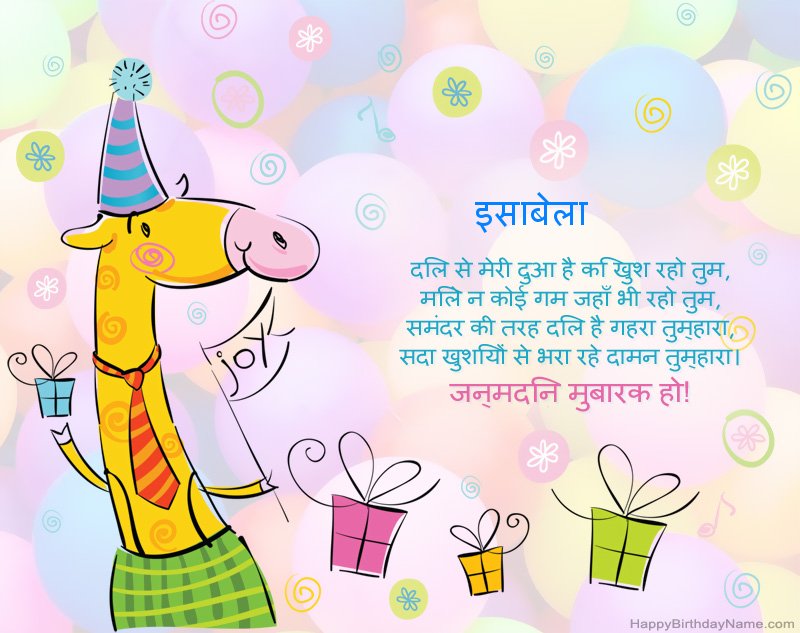 इसाबेला
joy
दिल से मेरी दुआ है कि खुश रहो तुम,
मिले न कोई गम जहाँ भी रहो तुम,
समंदर की तरह दिल है गहरा तुम्हारा,
सदा खुशियों से भरा रहे दामन तुम्हारा।
जन्मदिन मुबारक हो!
HappyBirthdayName.com